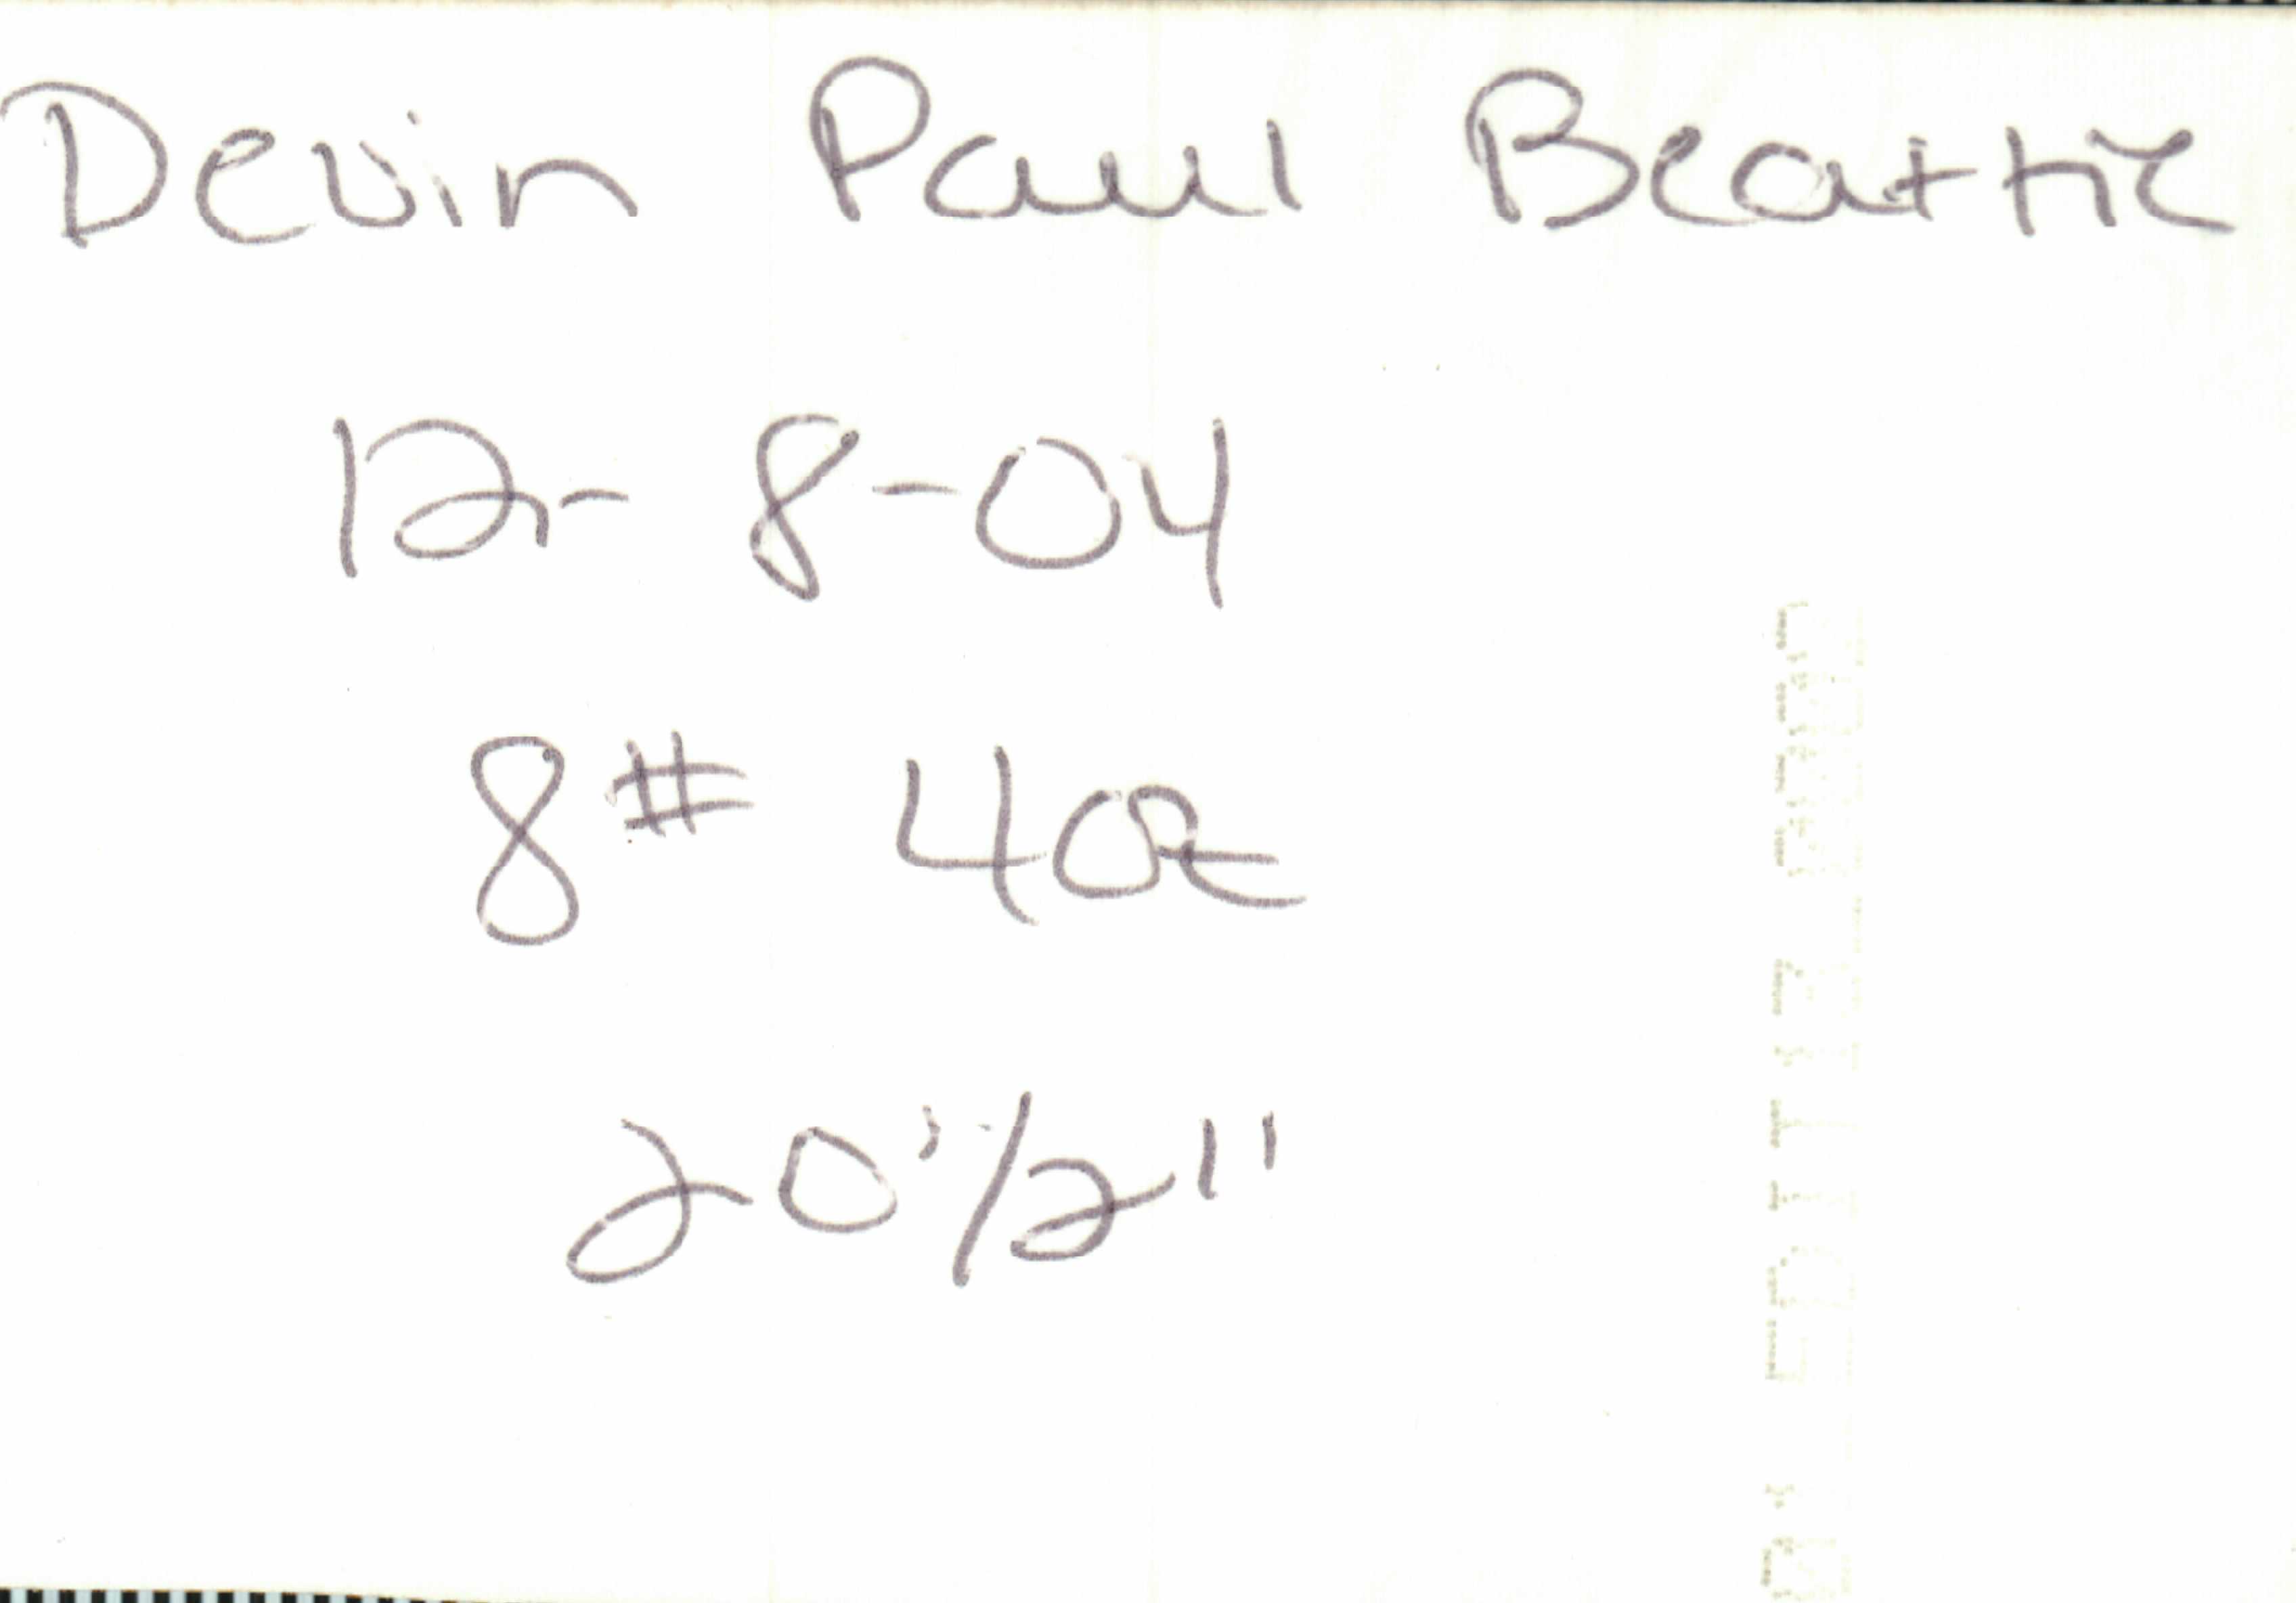 Devin Paul Beattie
12-8-04
8# 4oz
20 1/2"